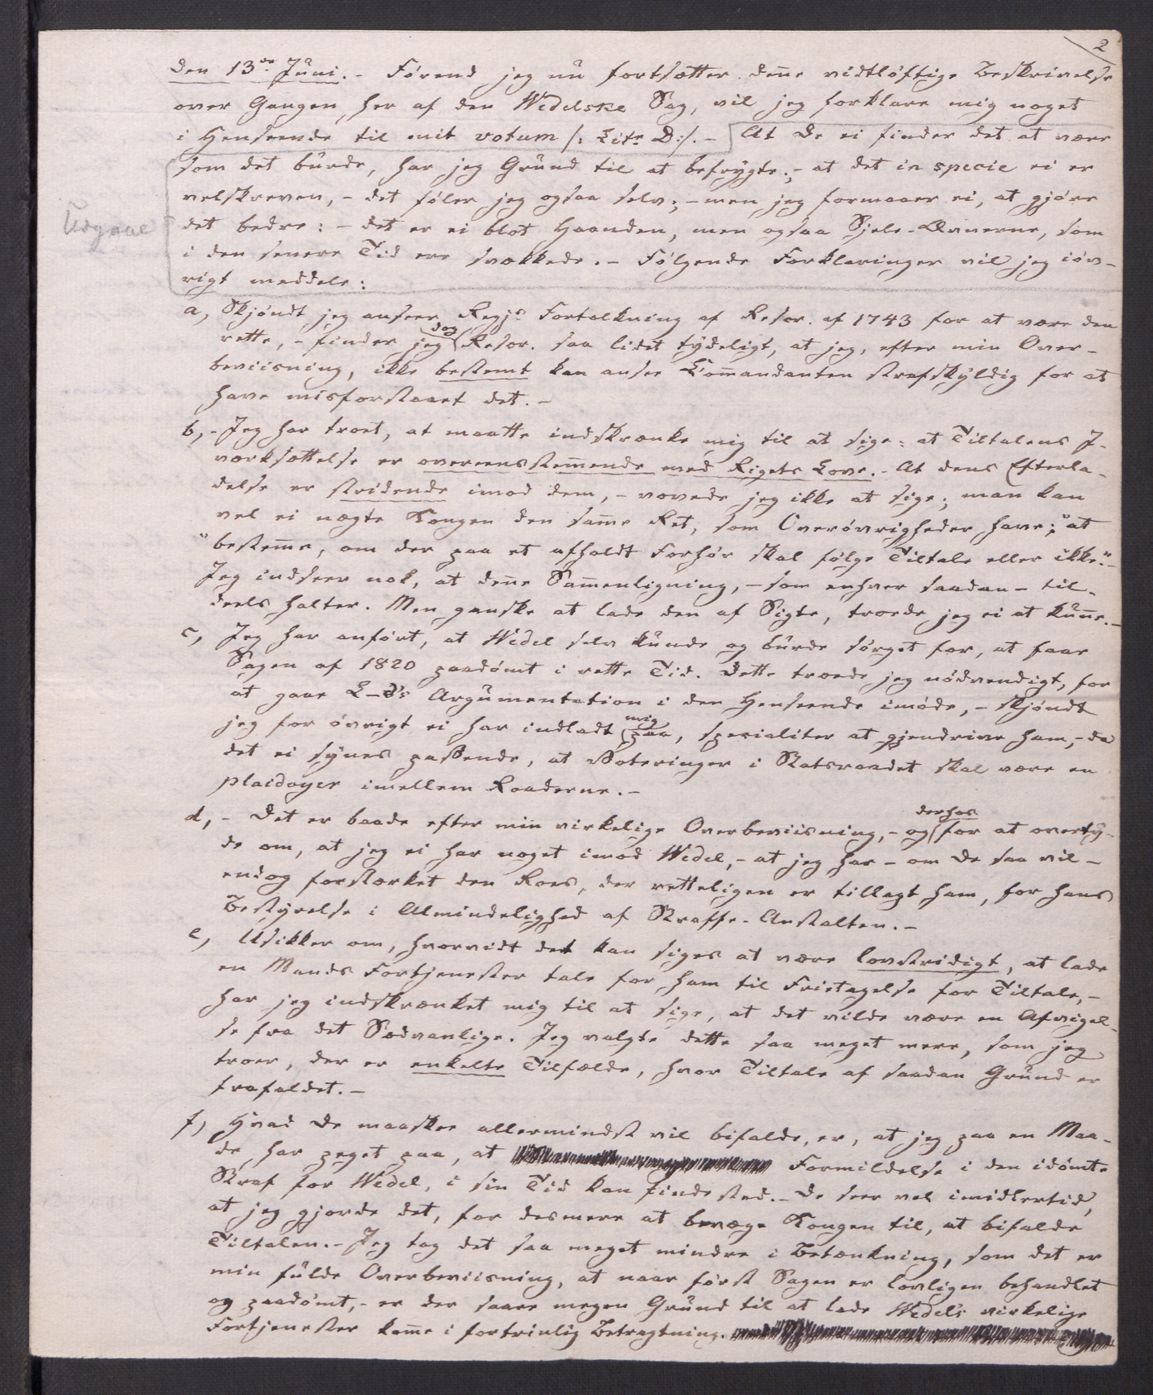 2
den 13de Júni. - Förend jeg nú fortsætter denne vidtløftige Beskrivelse
over Gangen her af den Wedelske Sag, vil jeg forklare mig noget
i Henseende til mit votum /: Litr D:/. - At De ei finder det at være
som det búrde, har jeg Grúnd til at befrygte; - at det in specie ei er
velskreven, - det føler jeg ogsaa selv; - men jeg formaaer ei, at gjøre
Udgaae
det bedre: - det er ei blot Haanden, men ogsaa Sjels-Evnerne, som
i den senere Tid ere svækkede. - Følgende Forklaringer vil jeg iøv-
rigt meddele:
a, Skjöndt jeg anseer Regjs Fortolkning af Resor. af 1743 for at være den
rette, - finder jeg dog Resor. saa lidet týdeligt, at jeg, efter min Over-
beviisning, ikke bestemt kan ansee Commandanten strafskýldig for at
have misforstaaet det. -
b, - Jeg har troet, at maatte indskrænke mig til at sige: at Tiltalens I-
værksættelse er overeensstemmende med Rigets Love. - At dens Efterla-
delse er stridende imod dem, - vovede jeg ikke at sige; man kan
vel ei nægte Kongen den samme Ret, som Overövrigheder have; "at
"bestemme, om der paa et afholdt Forhör skal fölge Tiltale eller ikke." -
Jeg indseer nok, at denne Sammenligning, - som enhver saadan - til-
deels halter. Men ganske at lade den af Sigte, troede jeg ei at kúnne. -
c, Jeg har anfört, at Wedel selv kúnde og búrde sörget for, at faae
Sagen af 1820 paadömt i rette Tid. Dette troede jeg nödvendigt, for
at gaae L-d's Argúmentation i den Henseende imöde, - skjöndt
jeg for övrigt ei har indladt mig paa, specialiter at gjendrive ham, - da
det ei sýnes passende, at Voteringer i Statsraadet skal være en
plaidoyer imellem Raaderne. -
d, - Det er baade efter min virkelige Overbeviisning, - og derhos for at overtý-
de om, at jeg ei har noget imod Wedel, - at jeg har - om De saa vil -
endog forstærket den Roes, der retteligen er tillagt ham, for hans
Bestýrelse i Almindelighed af Straffe-Anstalten. -
e, Usikker om, hvorvidt det kan siges at være lovstridigt, at lade
en Mands Fortjenester tale for ham til Fritagelse for Tiltale, -
har jeg indskrænket mig til at sige, at det vilde være en Afvigel-
se fra det Sædvanlige. Jeg valgte dette saa meget mere, som jeg
troer, der er enkelte Tilfælde, hvor Tiltale af saadan Grúnd er
frafaldet. -
f, Hvad De maaskee allermindst vil bifalde, er, at jeg paa en Maa-
de har peget paa, at Formildelse i den idömte
Straf for Wedel, i sin Tid kan finde sted. - De seer vel imidlertid,
at jeg gjorde det, for desmere at bevæge Kongen til, at bifalde
Tiltalen. - Jeg tog det saa meget mindre i Betænkning, som det er
min fúlde Overbeviisning, at naar först Sagen er lovligen behandlet
og paadömt, - er der saare megen Grúnd til at lade Wedels virkelige
Fortjenester komme i fortrinlig Betragtning.